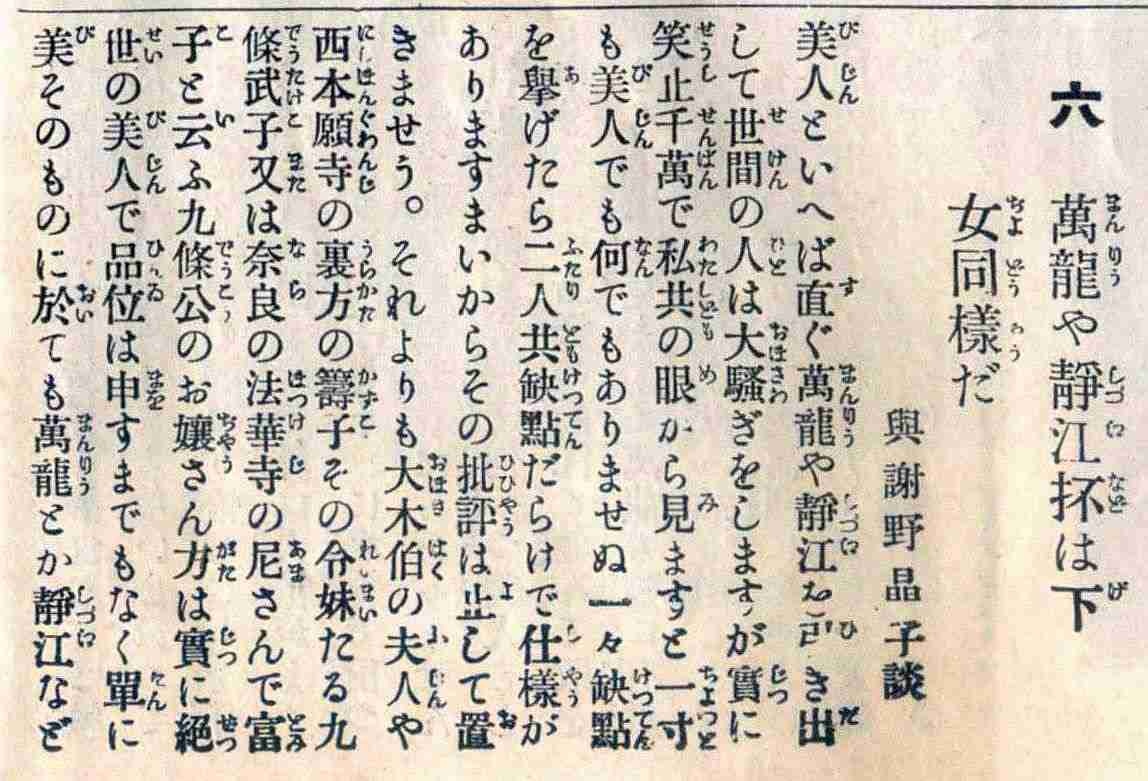 六 萬龍や靜江抔は下
女同樣だ
與謝野晶子談
美人といへば直ぐ萬龍や靜江を引き出
して世間の人は大騷ぎをしますが實に
笑止千萬で私共の眼から見ますと一寸
も美人でも何でもありませぬ一々缺點
を擧げたら二人共缺點だらけで仕樣が
ありますまいからその批評は止して置
きませう。それよりも大木伯の夫人や
西本願寺の裏方の籌子その令妹たる九
條武子又は奈良の法華寺の尼さんで富
子と云ふ九條公のお孃さん方は實に絕
世の美人で品位は申すまでもなく單に
美そのものに於ても萬龍とか靜江など